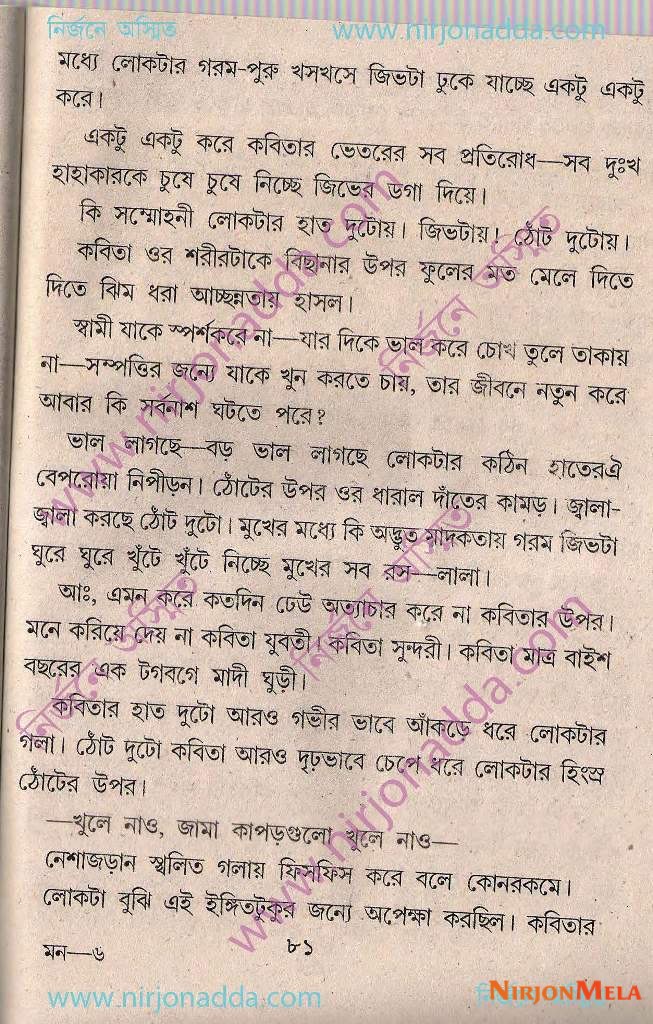 নির্জনে অস্মিত www.nirjonadda.com
মধ্যে লোকটার গরম-পুরু খসখসে জিভটা ঢুকে যাচ্ছে একটু একটু
করে।
একটু একটু করে কবিতার ভেতরের সব প্রতিরোধ—সব দুঃখ
হাহাকারকে চুষে চুষে নিচ্ছে জিভের ডগা দিয়ে।
কি সম্মোহনী লোকটার হাত দুটোয়। জিভটায়। ঠোঁট দুটোয়।
কবিতা ওর শরীরটাকে বিছানার উপর ফুলের মত মেলে দিতে
দিতে ঝিম ধরা আচ্ছন্নতায় হাসল।
স্বামী যাকে স্পর্শকরে না—যার দিকে ভাল করে চোখ তুলে তাকায়
না—সম্পত্তির জন্যে যাকে খুন করতে চায়, তার জীবনে নতুন করে
আবার কি সর্বনাশ ঘটতে পরে?
ভাল লাগছে—বড় ভাল লাগছে লোকটার কঠিন হাতেরঐ
বেপরোয়া নিপীড়ন। ঠোঁটের উপর ওর ধারাল দাঁতের কামড়। জ্বালা-
জ্বালা করছে ঠোঁট দুটো। মুখের মধ্যে কি অদ্ভুত মাদকতায় গরম জিভটা
ঘুরে ঘুরে খুঁটে খুঁটে নিচ্ছে মুখের সব রস—লালা।
আঃ, এমন করে কতদিন ঢেউ অত্যাচার করে না কবিতার উপর।
মনে করিয়ে দেয় না কবিতা যুবতী। কবিতা সুন্দরী। কবিতা মাত্র বাইশ
বছরের এক টগবগে মাদী ঘুড়ী।
কবিতার হাত দুটো আরও গভীর ভাবে আঁকড়ে ধরে লোকটার
গলা। ঠোঁট দুটো কবিতা আরও দৃঢ়ভাবে চেপে ধরে লোকটার হিংস্র
ঠোঁটের উপর।
—খুলে নাও, জামা কাপড়গুলো খুলে নাও—
নেশাজড়ান স্খলিত গলায় ফিসফিস করে বলে কোনরকমে।
লোকটা বুঝি এই ইঙ্গিতটুকুর জন্যে অপেক্ষা করছিল। কবিতার
মন—৬ ৮১
www.nirjonadda.com NIRJONMELA
www.nirjonadda.com নির্জনে অস্মিত
www.nirjonadda.com নির্জনে অস্মিত